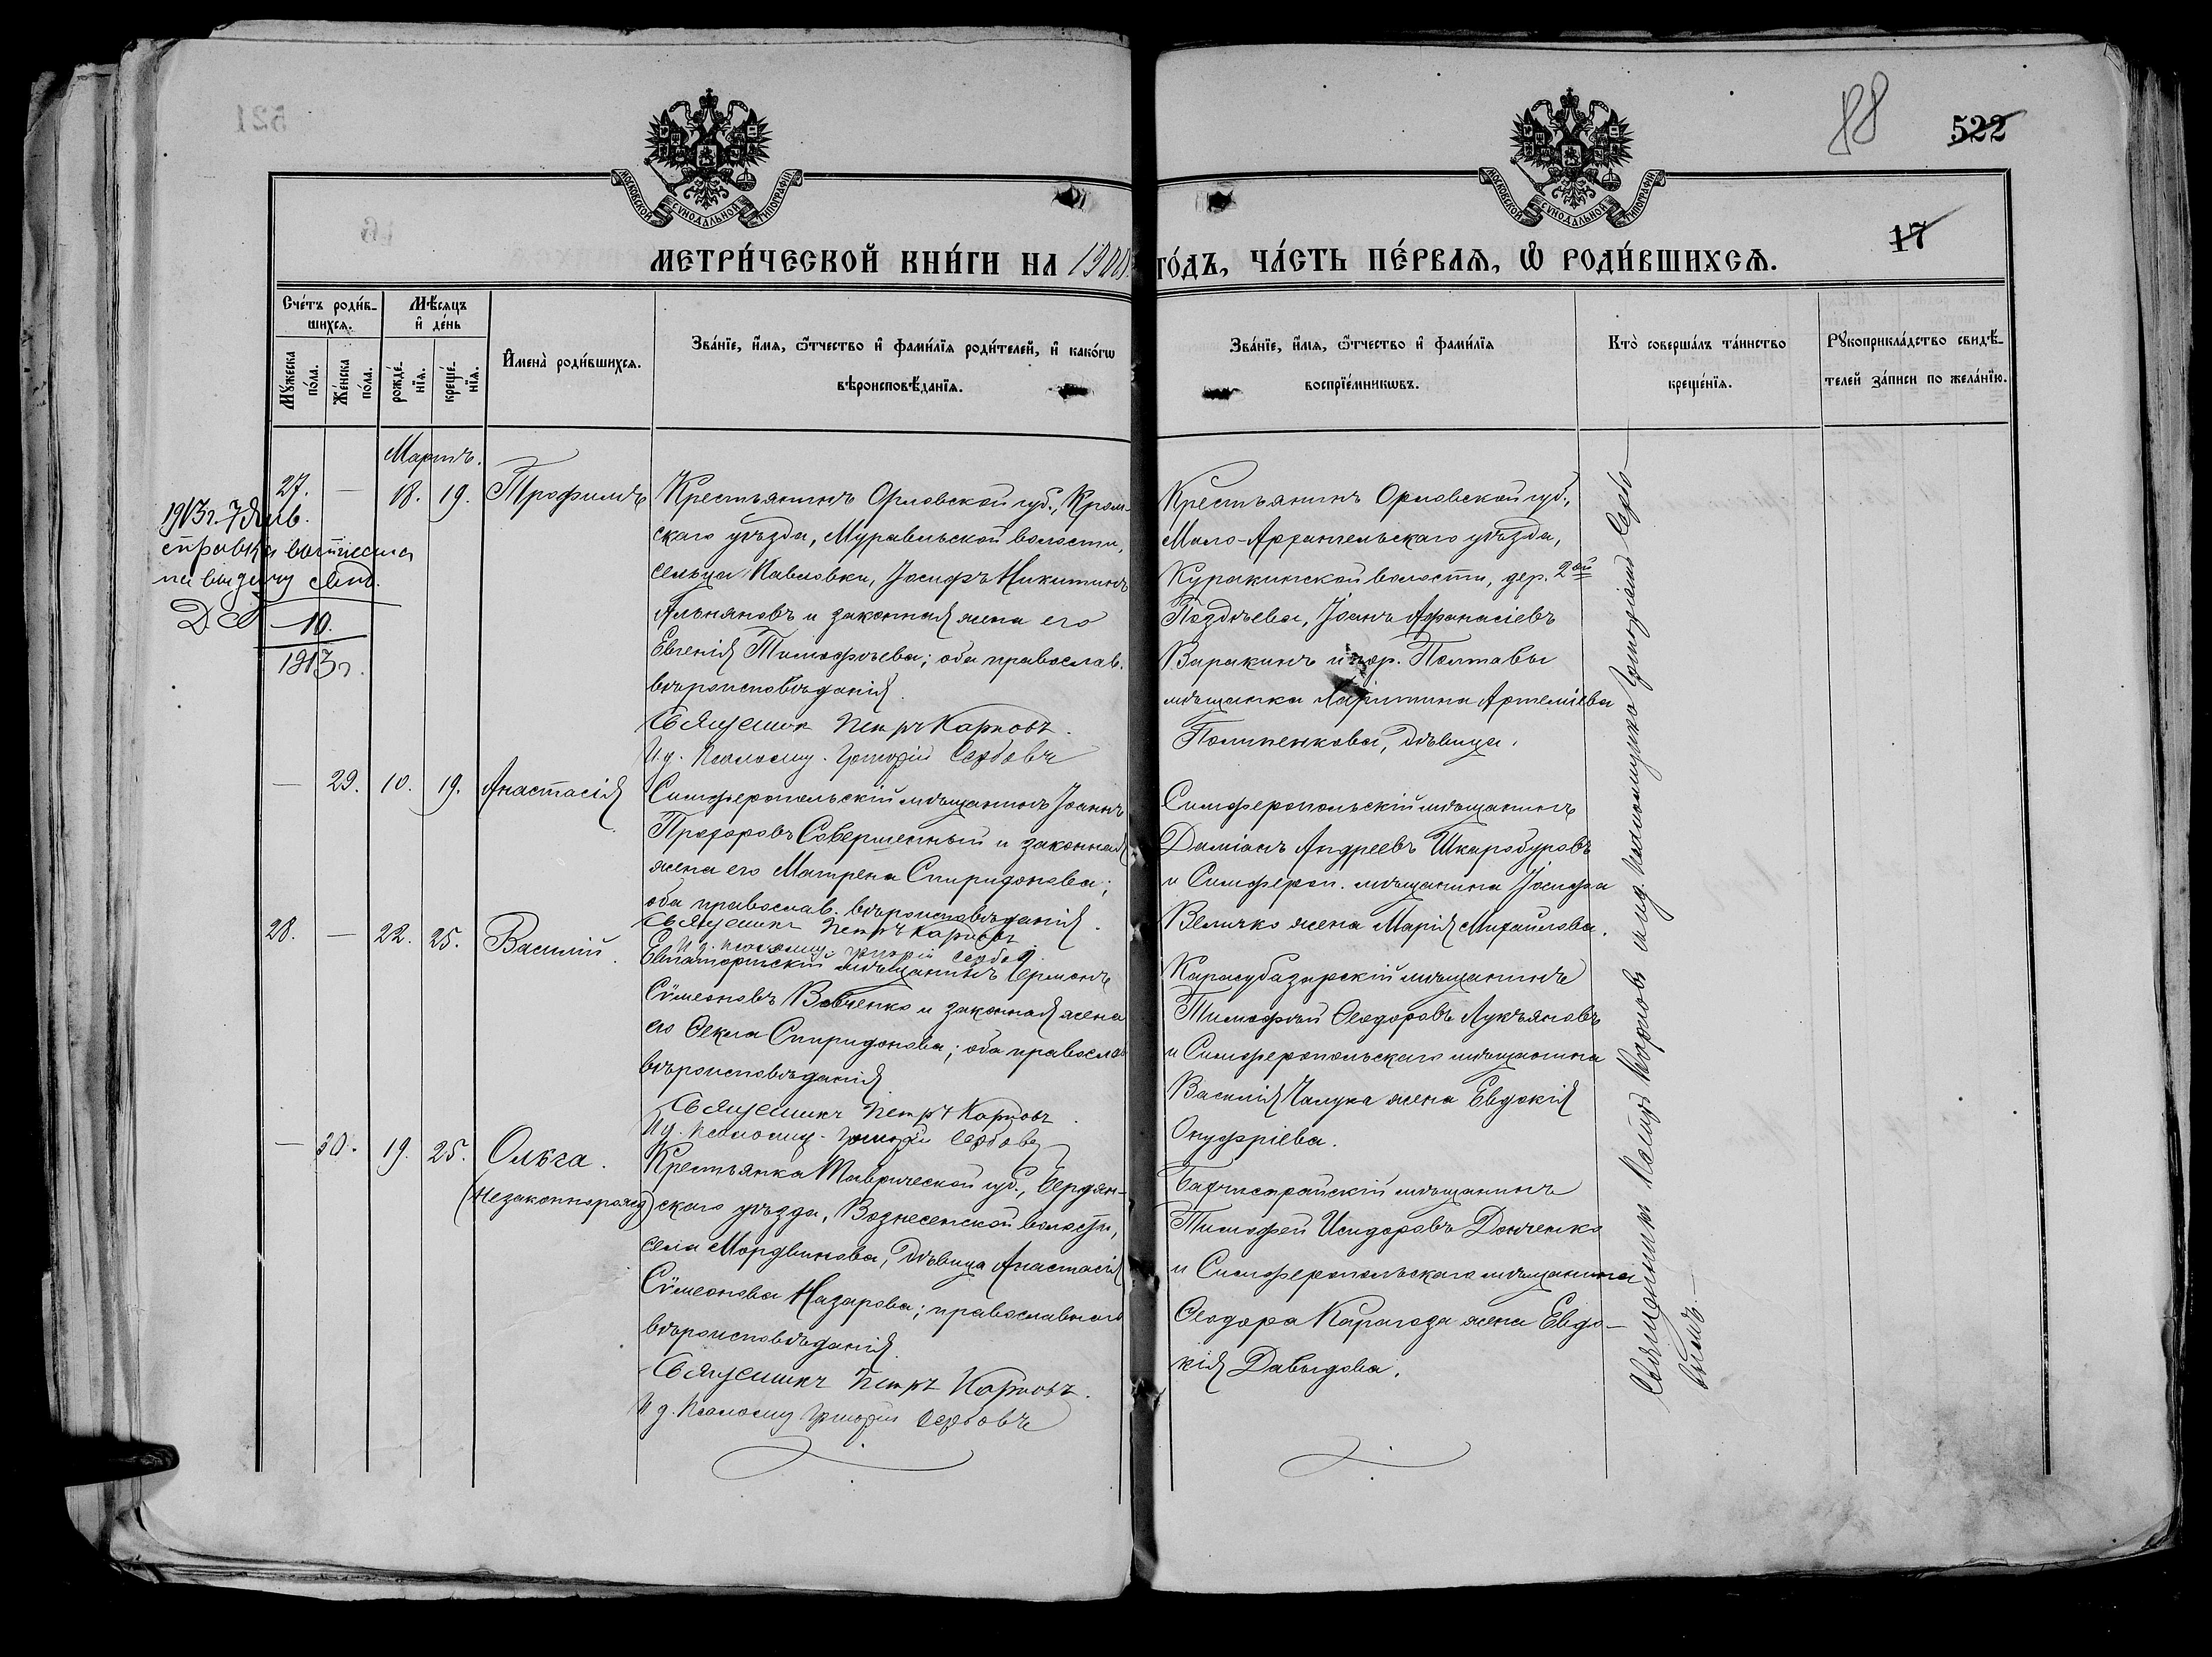 88
522
17
МОСКОВСКОЙ СѴНОДАЛЬНОЙ ТИПОГРАФІИ
МОСКОВСКОЙ СѴНОДАЛЬНОЙ ТИПОГРАФІИ
МЕТРИ́ЧЕСКОЙ КНИ́ГИ НА 1900 ГО́ДЪ, ЧА́СТЬ ПЕ́РВАЯ, Ѡ РОДИ́ВШИХСЯ.
Сче́тъ роди́в-
шихся.
Мѣ́сяцъ
и҆ де́нь
Мꙋ́жеска
по́ла.
Же́нска
по́ла.
рожде́-
нїя.
креще́-
нїя.
И҆мена̀ роди́вшихся.
Зва́нїе, и҆́мя, ѻ҆́тчество и҆ фами́лїя роди́телей, и҆ како́гѡ
вѣроисповѣ́данїя.
Зва́нїе, и҆́мя, ѻ҆́тчество и҆ фами́лїя
воспрїе́мникѡвъ.
Кто̀ соверша́лъ та́инство
креще́нїя.
Рꙋкоприкла́дство свидѣ́-
телей за́писи по жела́нїю.
Мартъ.
27. — 18. 19. Трофимъ
1913 г. 7 Янв.
справка
на выдачу свид.
10.
1913 г.
Крестьянинъ Орловской губ., Кром-
скаго уѣзда, Муравльской волости,
сельца Павловки, Іосифъ Никитинъ
Альняновъ и законная жена его
Евгенія Тимофѣева; оба православ.
вѣроисповѣданія.
Священник Петръ Карповъ.
И. д. Псаломщ. Григорій Сербовъ
Крестьянинъ Орловской губ.,
Мало-Архангельскаго уѣзда,
Куракинской волости, дер. 2ой
Поздѣева, Іоанъ Афанасіевъ
Варакинъ и гор. Полтавы
мѣщанка Харитина Артеміева
Полипенкова, дѣвица.
— 29. 10. 19. Анастасія
Симферопольскій мѣщанинъ Іоаннъ
Прохоровъ Совершенный и законная
жена его Матрена Спиридонова;
оба православ. вѣроисповѣданія.
Священникъ Петръ Карповъ
И. д. Псаломщ. Григорій Сербов
Симферопольскій мѣщанинъ
Даміанъ Андреевъ Шкаробуровъ
и Симфероп. мѣщанина Іосифа
Величко жена Марія Михайлова.
28. — 22. 25. Василій.
Евпаторійскій мѣщанинъ Ермонъ
Сѵмеоновъ Вовченко и законная жена
его Ѳекла Спиридонова; оба православ
вѣроисповѣданія
Священникъ Петръ Карповъ.
И. д. Псаломщ. Григорій Сербовъ
Карасубазарскій мѣщанинъ
Тимофей Ѳеодоровъ Лукьяновъ
и Симферопольскаго мѣщанина
Василія Чалука жена Евдокія
Онуфріева.
— 30. 19. 25. Ольга.
(Незаконнорожд)
Крестьянка Таврической губ., Бердян-
скаго уѣзда, Вознесенской волости,
села Мордвинова, дѣвица Анастасія
Сѵмеонова Назарова; православнаго
вѣроисповѣданія.
Священникъ Петръ Карповъ.
И. д. Псаломщ Григорій Сербовъ
Бахчисарайскій мѣщанинъ
Тимофей Исидоровъ Донченко
и Симферопольскаго мѣщанина
Ѳеодора Карагоза жена Евдо-
кія Давыдова.
Священникъ Петръ Карповъ съ и. д. псаломщика Григоріемъ Сербо-
вымъ.—